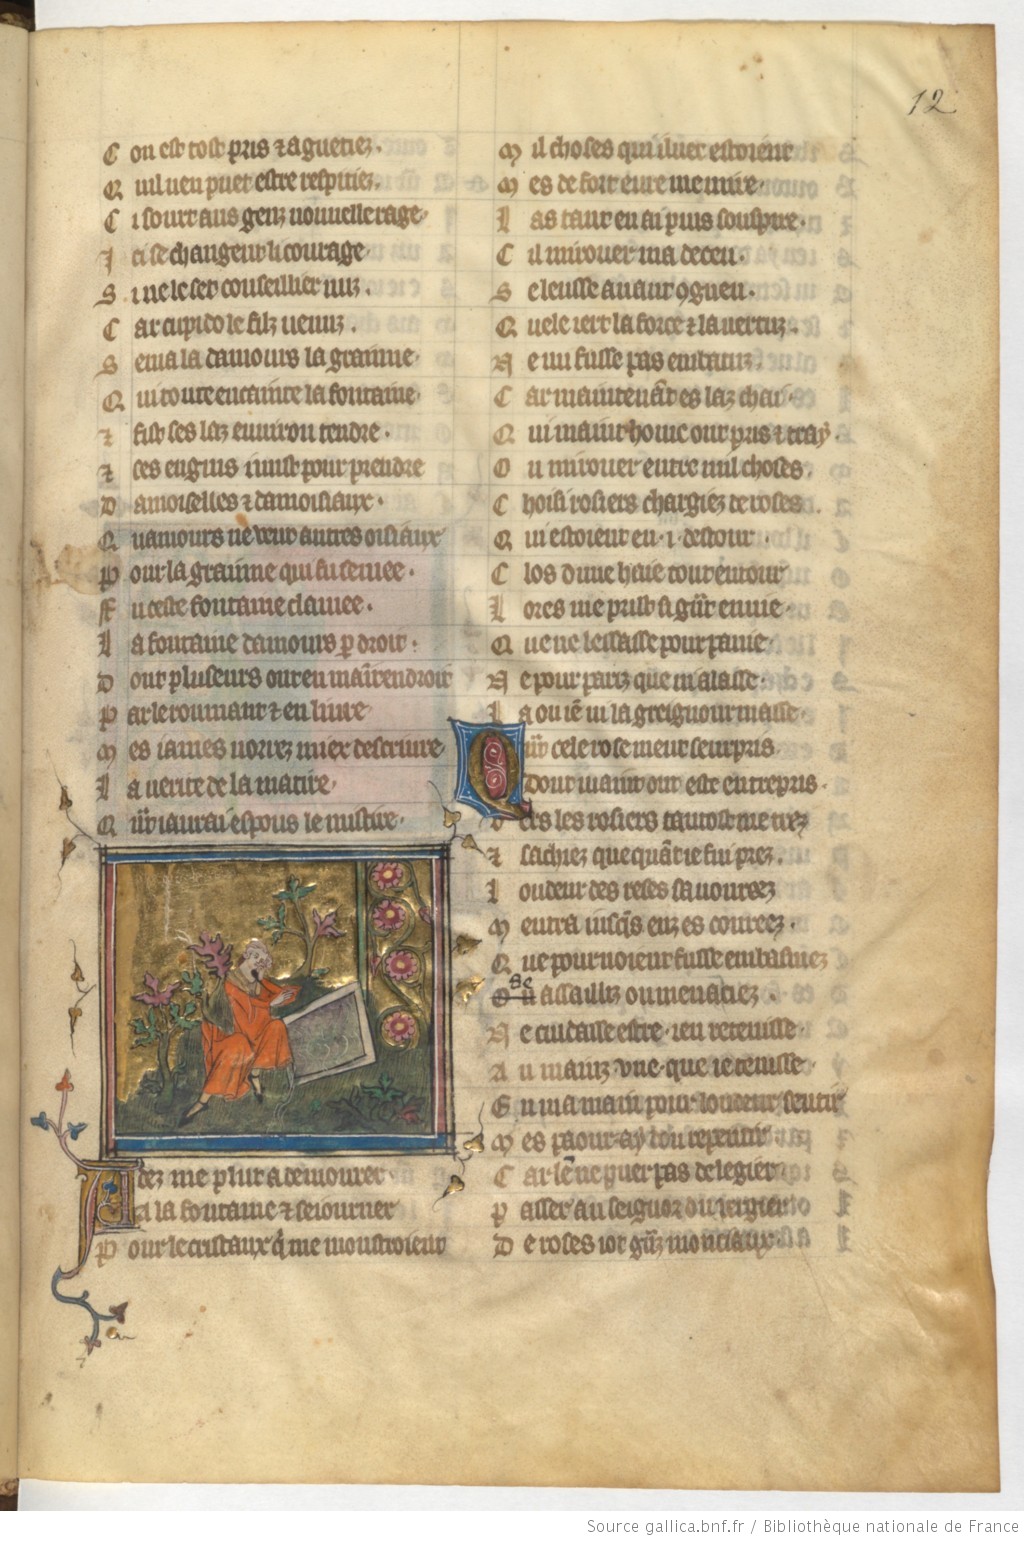 12
C on est tost pris et aguetiez.
Q uil nen puet estre respitiez.
C i sourt aus genz nouvelle rage.
I ci se changent li courage.
S i ne le set conseillier nuz.
C ar cupido le filz venuz.
S ema la damours la grainne.
Q ui toute encainte la fontaine.
⁊ fist ses laz environ tendre.
⁊ ces engins i mist pour prendre
D amoiselles ⁊ damoisiaux.
Q uamours ne veut autres oisiaux
P our la grainne qui fu semee.
F u ceste fontaine clamee.
L a fontaine damours p droit.
D ont pluseurs ont en maint endroit
P arle roumant ⁊ en livre
M es iames norrez miex descrivre
L a verite de la matire.
Q nt iaurai espons le mistire.
A dez me plut a demourer
A la fontaine ⁊ seiourner
P our le cristaux q me moustroient
M il choses qui iluec estoient
M es de fort eure me mire.
L as tant en ai puis souspire.
C il mirouer ma deceu.
S e leusse avant 9gneu.
Q uele iert la force ⁊ la vertuz.
N e mi fusse pas embatuz.
C ar maintenat es laz chai.
Q ui maint home ont pris ⁊ tray.
O u mirouer entre mil choses.
C hoisi rosiers chargiez de roses.
Q ui estoient en .i. destour.
C los dune haie tout entour
L ores me prist si gnt envie.
Q ue ne lessasse pour pavie.
N e pour pariz que ni alasse.
L a ou ie vi la greignour masse.
Q nt cele rose meut seurpris.
Dont maint ont este entrepris.
V ers les rosiers tantost me trez
⁊ sachiez que quat ie fui prez.
L oudeur des roses savourees
M entra iusqs enz es courees.
Q ue pour noient fusse embasmez
Se
assailliz ou menaciez.
N e cuidasse estre. ien retenisse.
A u mainz une. que ie tenisse.
E n ma main pour loudeur sentir
M es paour ay dou repentir
C ar len ne puet pas de legier
P asser au seignor du vergier
D e roses iot gnz monciaux.
Source gallica.bnf.fr / Bibliothèque nationale de France